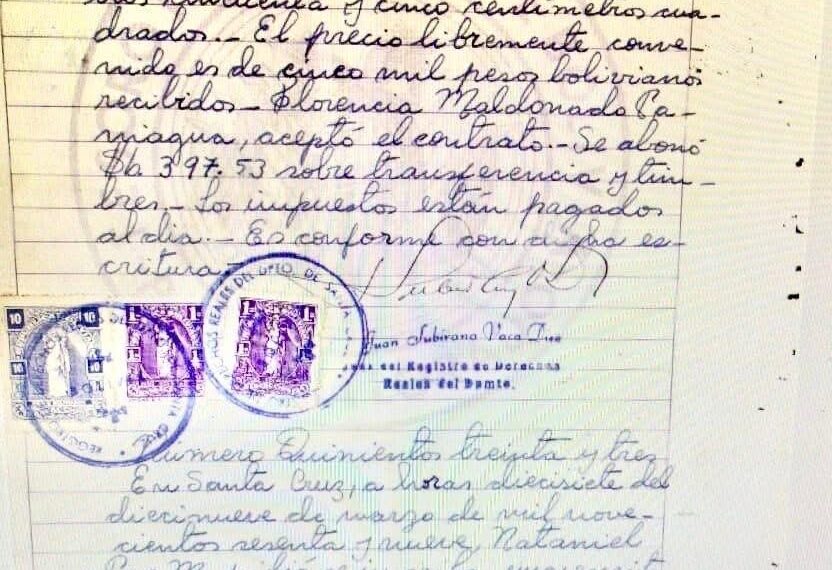 cuenta y cinco centímetros cua-
drados.- El precio libremente conve-
nido es de cinco mil pesos bolivianos
recibidos - Florencia Maldonado Pa-
niagua, aceptó el contrato.- Se abonó
$b. 397.53 sobre transferencia y tim-
bres.- Los impuestos están pagados
al dia.- Es conforme con dicha es-
critura -
10 10
10 10
DERECHOS REALES DEL DPTO. DE SANTA
Juan Subirana Vaca Diez
del Registro de Derechos
Reales del Dpmto.
Número Quinientos treinta y tres
En Santa Cruz, a horas diecisiete del
diecinueve de marzo de mil nove-
cientos sesenta y nueve, Nataniel